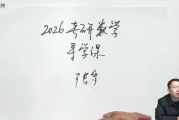 2026考研数学
导学课